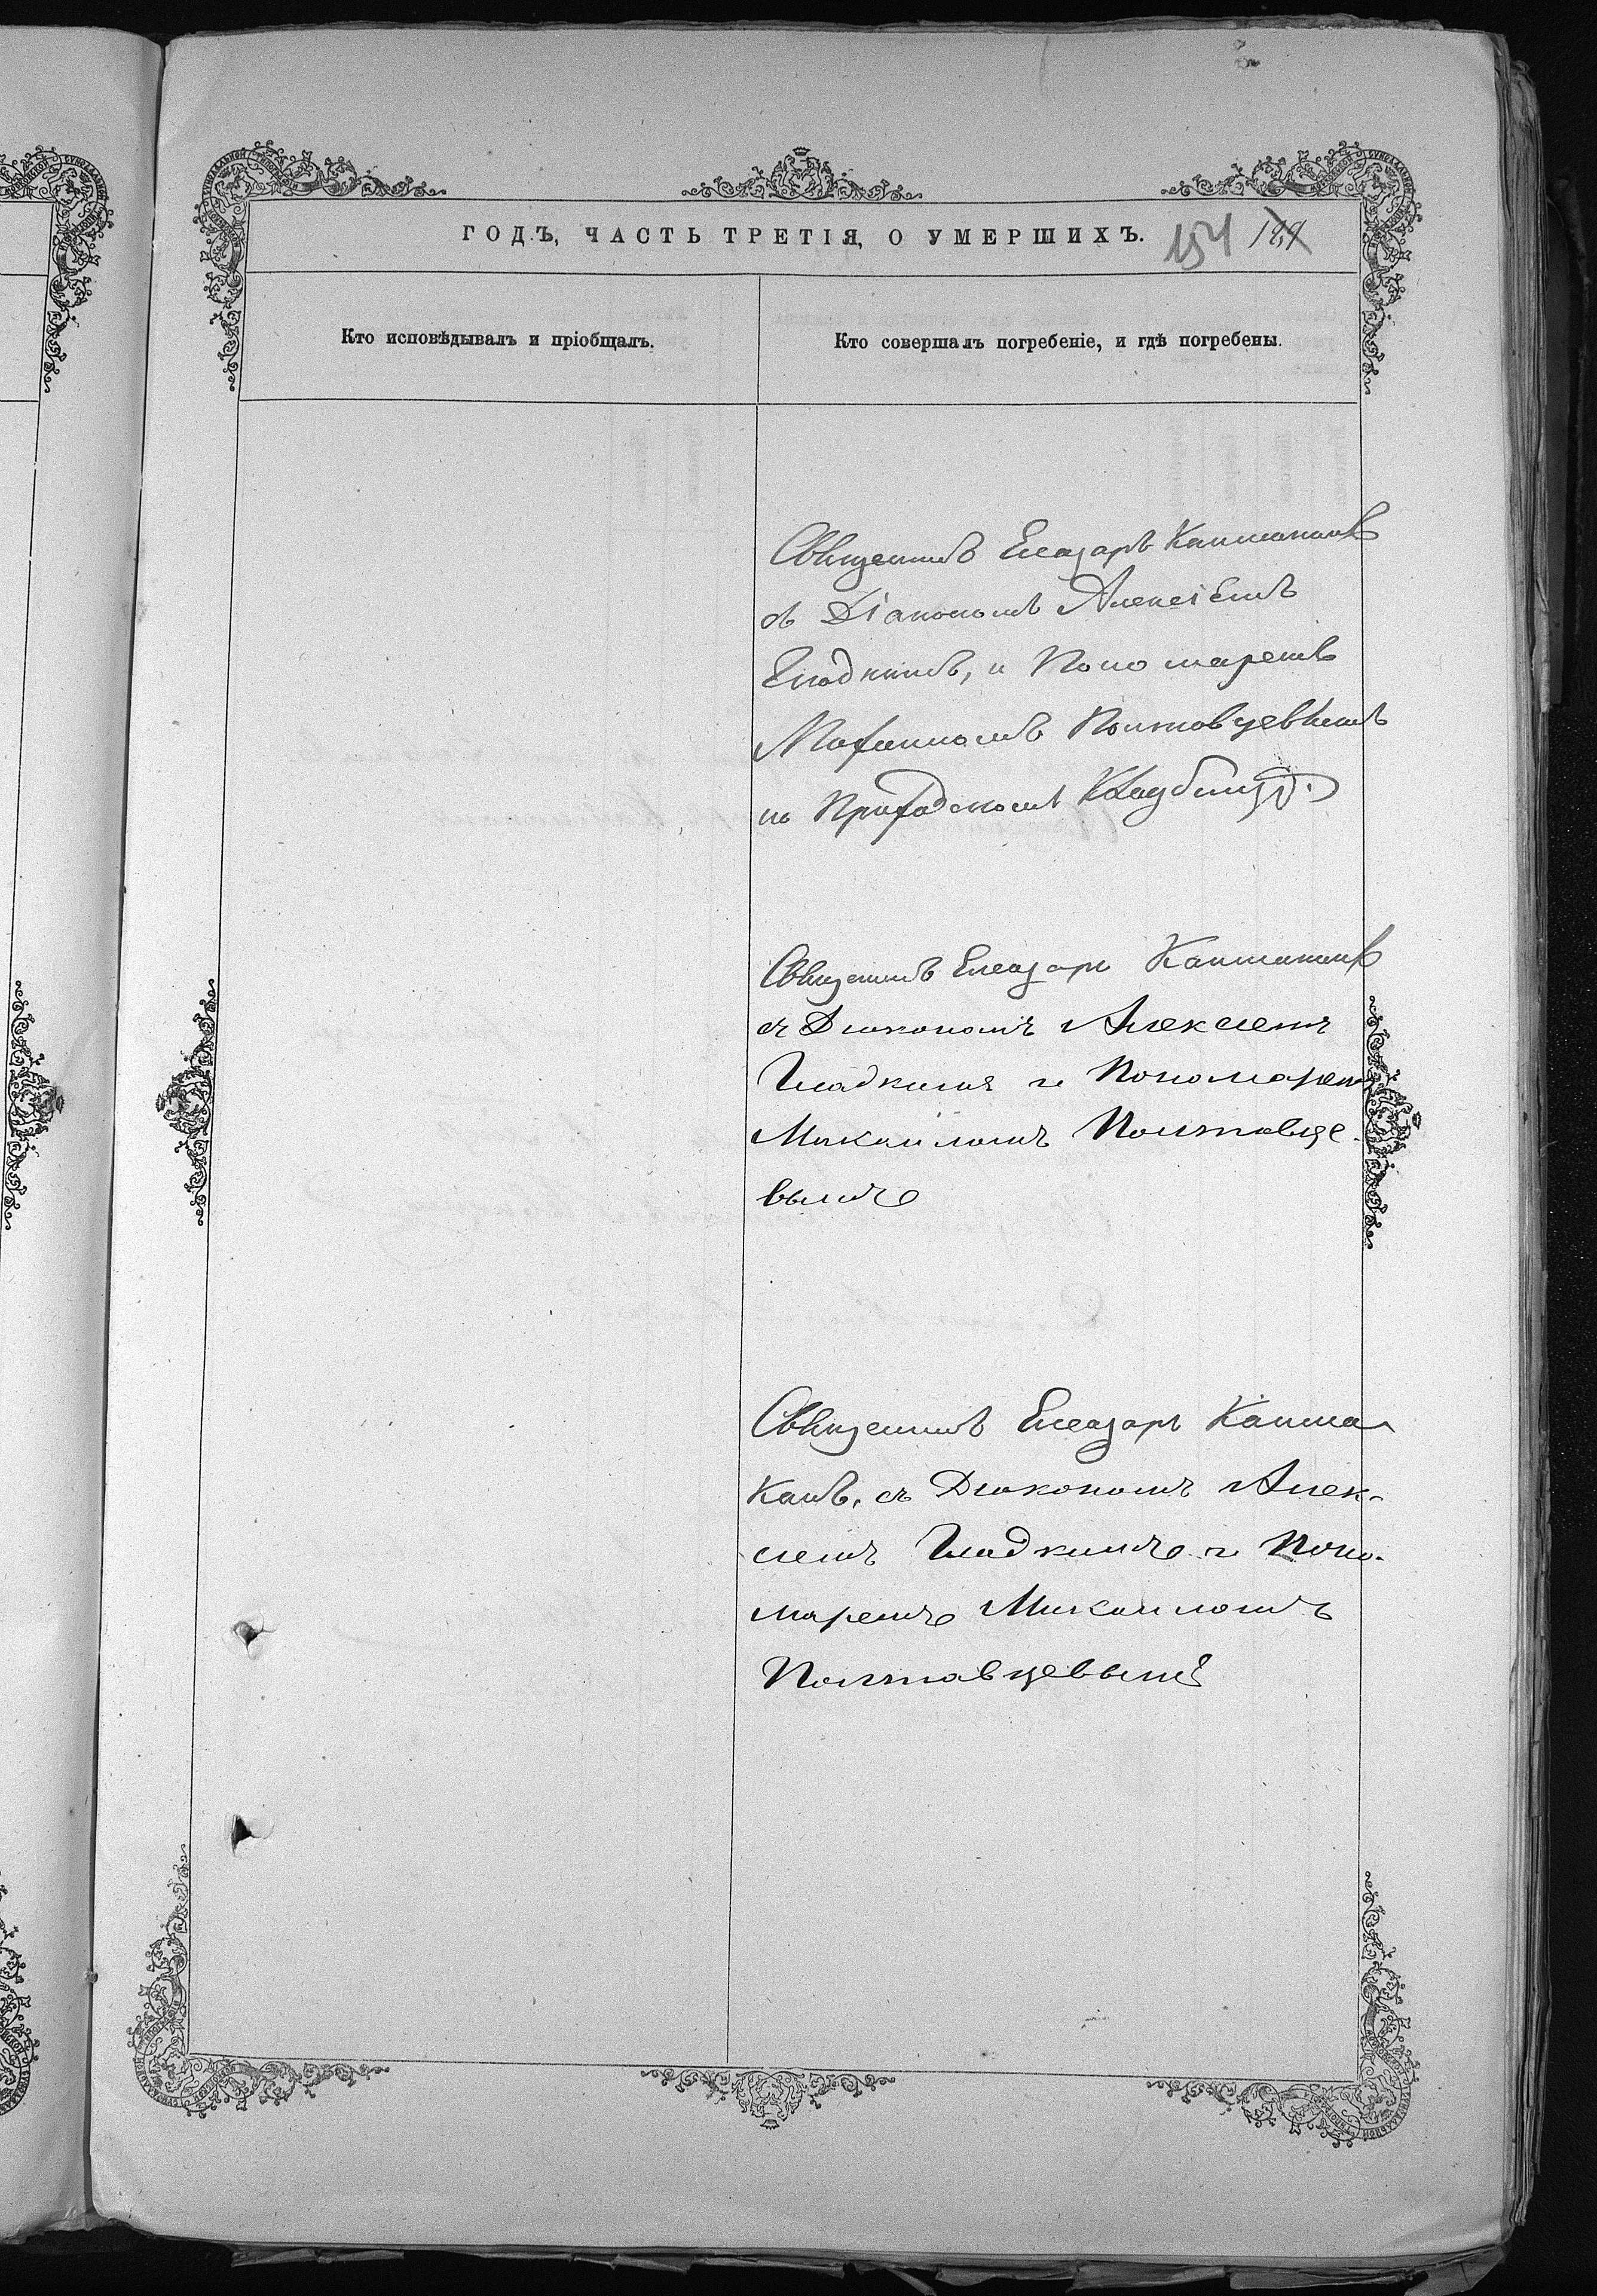 ГОДЪ, ЧАСТЬ ТРЕТІЯ, О УМЕРШИХЪ. 154
Кто исповѣдывалъ и пріобщалъ.
Кто совершалъ погребеніе, и гдѣ погребены.
Священикъ Елеазаръ
съ Діакономъ Алексіемъ
Гладкимъ, и Пономаремъ
Михаиломъ Полтавцевымъ
на Приходскомъ Кладбищѣ.
Священикъ Елеазаръ
съ Диакономъ Алексеемъ
Гладкимъ и Пономаремъ
Михаиломъ Полтавце
вымъ
Священикъ Елеазаръ Капта
съ Диакономъ Алек-
сеемъ Гладкимъ и Поно-
маремъ Михаиломъ
Полтавцевымъ